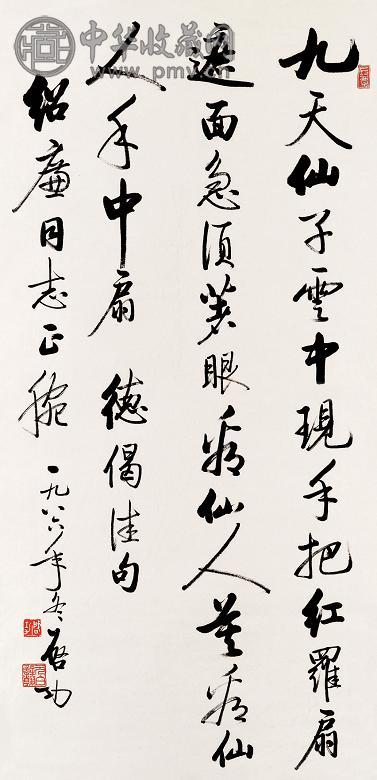 中华收藏网
www.pmv.cn
九天仙子雲中現手把紅羅扇
遮面急須著眼看仙人莫看仙
人手中扇 德偈佳句
绍廉同志正腕 一九八六年冬 啓功